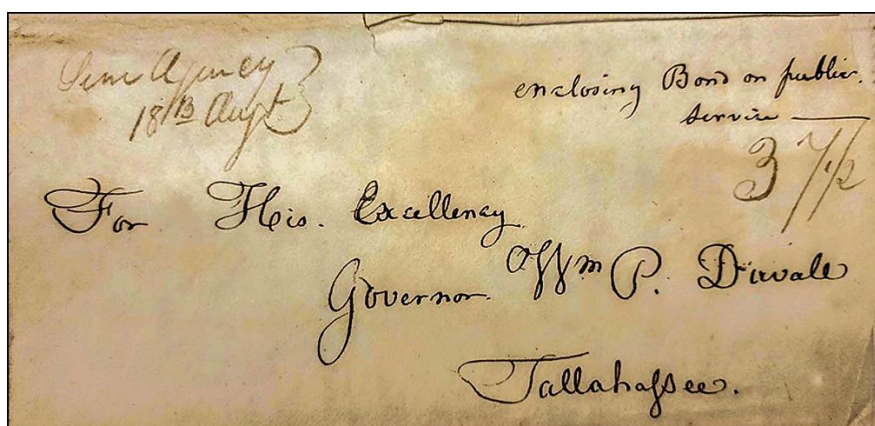 Sem Agency
18th Augt
enclosing Bond on public
service —
37 1/2
For His. Excellency
Governor Wm P. Duvale
Tallahaſsee.